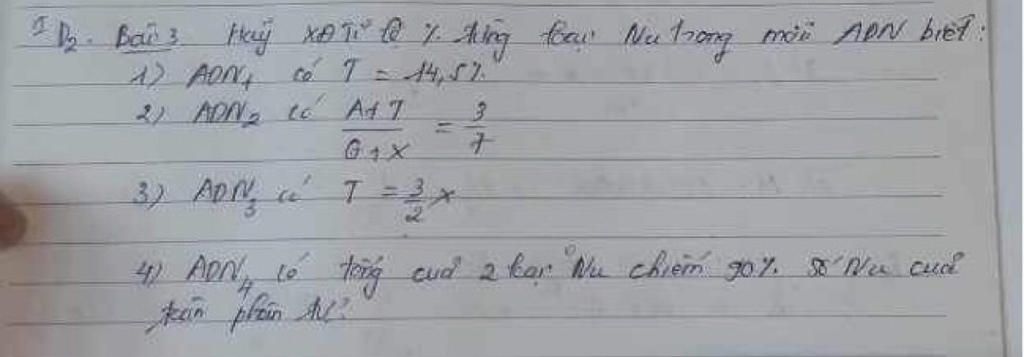 D2. Bài 3 Hãy XĐ Tỉ lệ % từng loại Nu trong mỗi ADN biết:
1) ADN1 có T = 14,5%
2) ADN2 có A+T/G+X = 3/7
3) ADN3 có T = 3/2 X
4) ADN4 có tổng của 2 loại Nu chiếm 90% số Nu của
toàn phân tử.